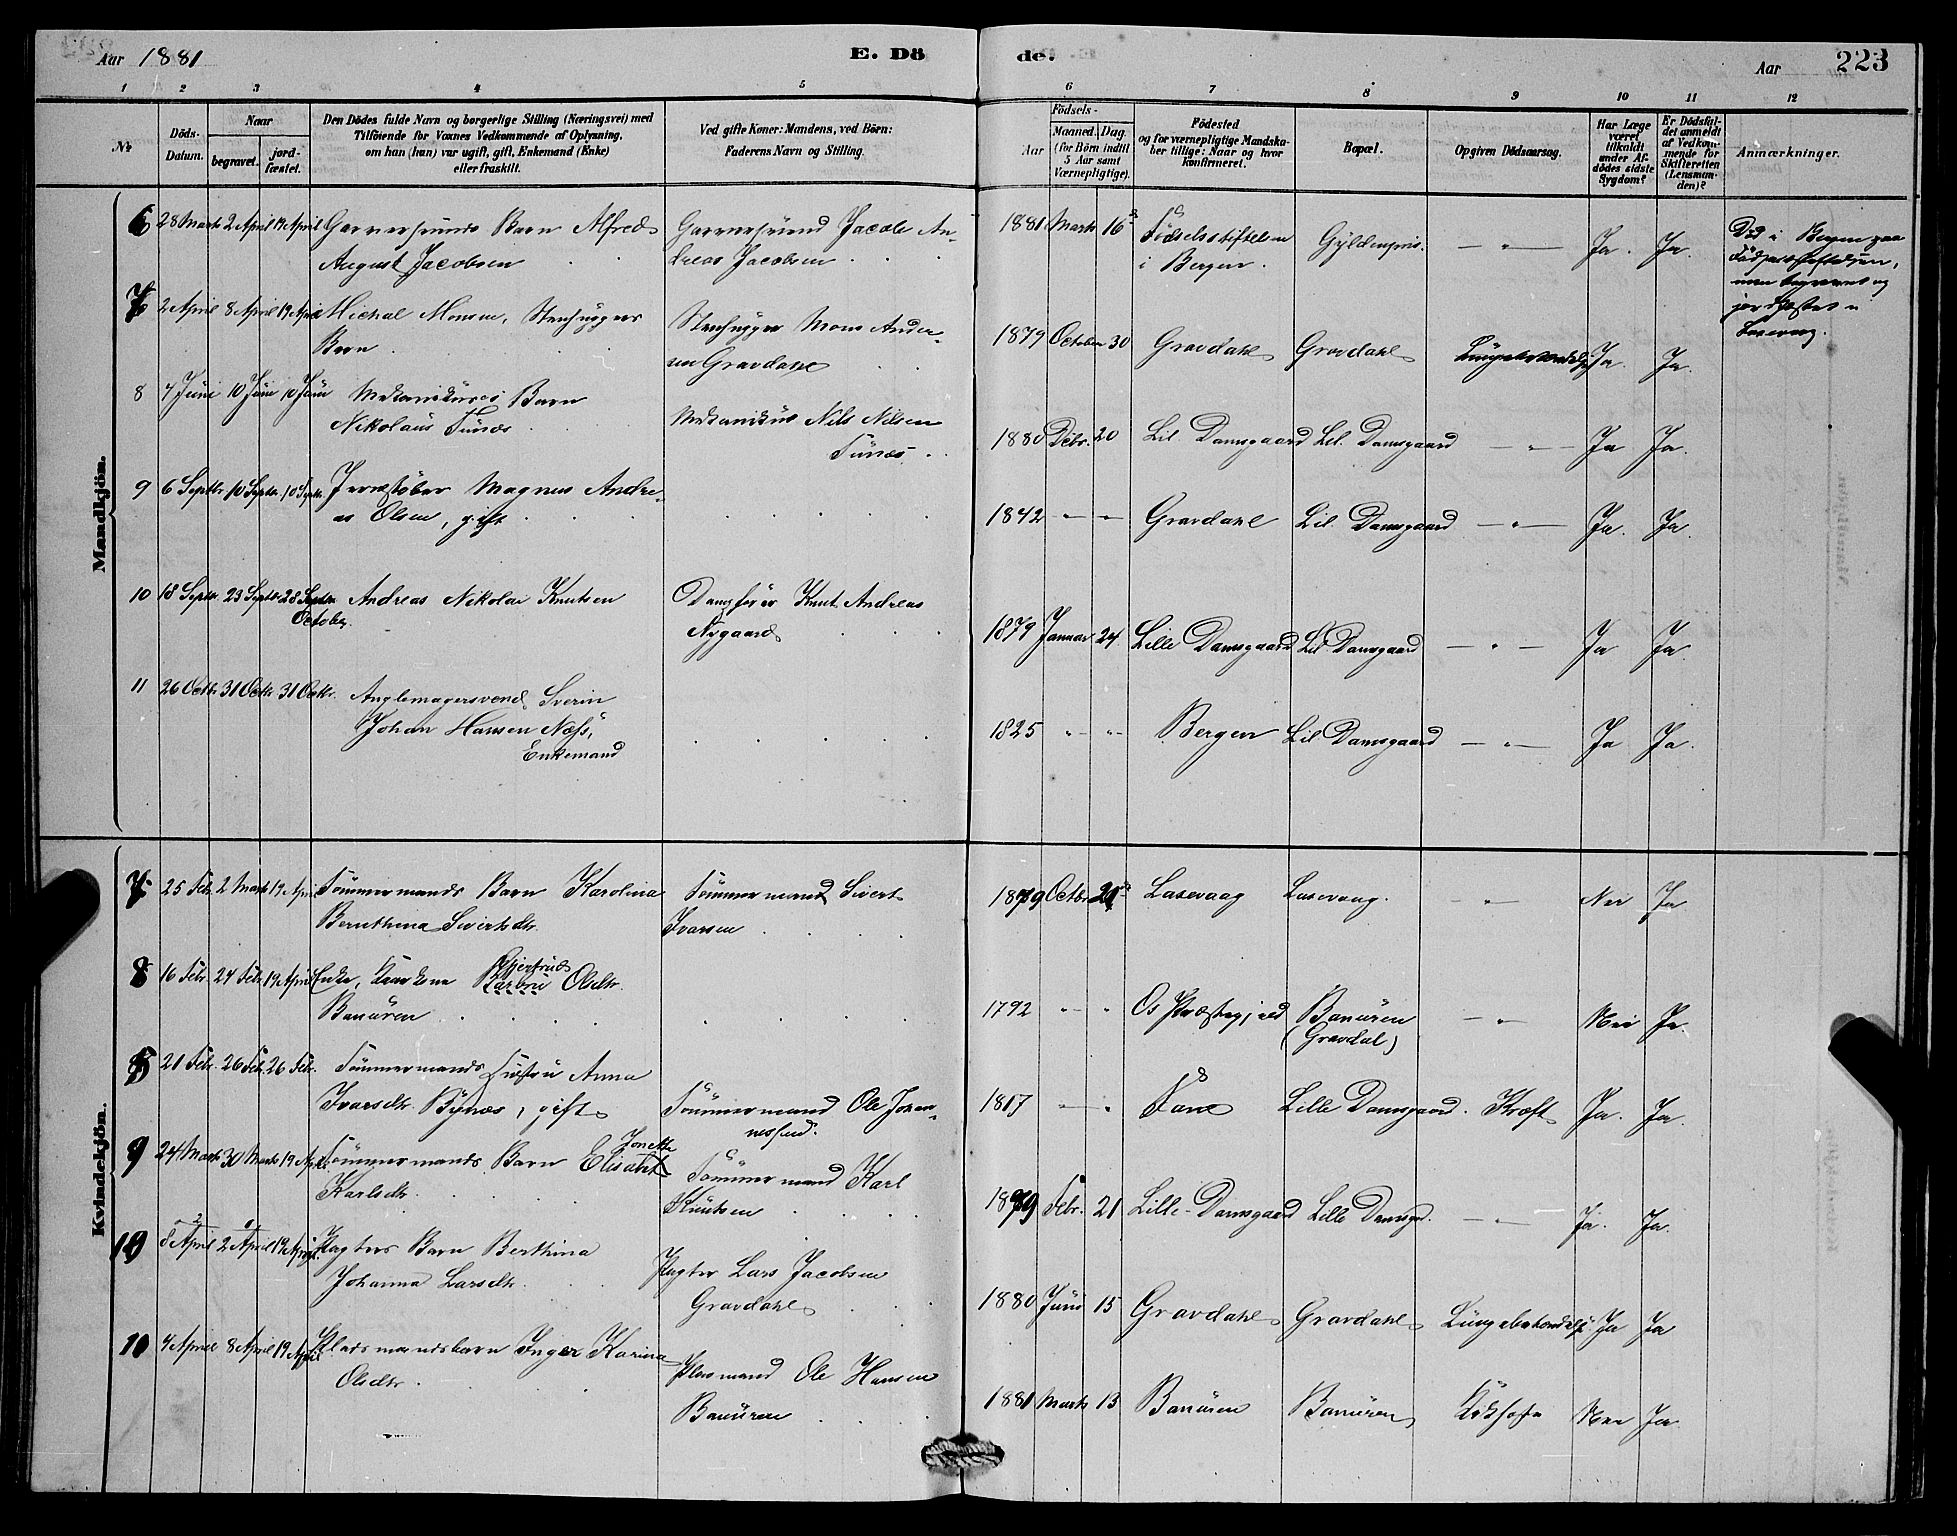 Aar 1881
E. Dö
de.
Aar
223
1 2 3 4 5 6 7 8 9 10 11 12
№
Döds-
Datum.
Naar
begravet.
jord-
fæstet.
Den Dödes fulde Navn og borgerlige Stilling (Næringsvei) med
Tilföiende for Voxnes Vedkommende af Oplysning,
om han (hun) var ugift, gift, Enkemand (Enke)
eller fraskilt.
Ved gifte Koner: Mandens, ved Börn:
Faderens Navn og Stilling.
Födsels-
Aar
Maaned. Dag.
(for Börn indtil
5 Aar samt
Værnepligtige).
Födested
og for værnepligtige Mandska-
ber tillige: Naar og hvor
konfirmeret.
Bopæl.
Opgiven Dödsaarsag.
Har Læge
været
tilkaldt
under Af-
dödes sidste
Sygdom?
Er Dödsfal-
det anmeldt
af Vedkom-
mende for
Skifteretten
(Lensman-
den)?
Anmærkninger.
Mandkjön.
6 28 Marts 2 April 19 April Garversvends Barn Alfred
August Jacobsen
Garversvend Jacob An-
dreas Jacobsen
1881 Marts 16 Fødselsstiftelsen
i Bergen.
Gyldenpris. — " — Ja. Ja.
Død i Bergen paa
Fødselsstiftelsen,
men begravet og
jordfæstet i
Laxevaag.
7 2 April 8 April 19 April Michal Monsen, Stenhuggers
Barn
Stenhugger Mons Ander-
sen Gravdahl
1879 October 30 Gravdahl Gravdahl Lungebetændelse Ja. Ja.
8 7 Juni 10 Juni 10 Juni Mekanikuses Barn
Nikolaus Tunæs
Mekanikus Nils Nilsen
Tunæs
1880 Debr. 20 Lil. Damsgaard Lil. Damsgaard — " — Ja Ja.
9 6 Septbr. 10 Septbr. 10 Septbr. Jernstøber Magnus Andre-
as Olsen, gift
1842 — " — " Gravdahl Lil. Damsgaard — " — Ja. Ja.
10 18 Septbr. 23 Septbr. 28 Septbr.
October.
Andreas Nikolai Knutsen
Dampfører Knut Andreas
Nygaard
1879 Januar 24 Lille Damsgaard Lil Damsgaard — " — Ja Ja.
11 26 Octbr. 31 Octbr. 31 Octbr. Anglemagersvend Sverin
Johan Hansen Næss,
Enkemand
1825 " " Bergen Lil Damsgaard — " — Ja Ja.
Kvindekjön.
7 25 Febr. 2 Marts 19 April Tømmermands Barn Karolina
Bernthina Sivertsdtr.
Tømmermand Sivert
Ivarsen
1879 Octbr. Laxevaag Laxevaag. — " — Nei Ja
8 16 Febr. 24 Febr. 19 April Enke, Gjertrud
Barbru Olsdtr.
Banuren
1792 " " Os Præstegjeld Banuren
(Gravdal)
— " — Nei Ja
21 Febr. 26 Febr. 26 Febr. Tømmermands Hustru Anna
Ivarsdtr. Bynæs, gift
Tømmermand Ole Johan-
nessen.
1817 — " Fane Lille Damsgaard. Kræft Ja. Ja.
9 24 Marts 30 Marts 19 April Tømmermands Barn Elisabet Jonette
Karlsdtr.
Tømmermand Karl
Knutsen
1879 Febr. 21 Lille-Damsgaard Lille Damsgd. — " — Ja. Ja.
10 April 2 April 19 April Pagters Barn Berthina
Johanna Larsdtr.
Pagter Lars Jacobsen
Gravdahl
1880 Juni 15 Gravdahl Gravdahl Lungebetændelse. Ja Ja
10 4 April 8 April 19 April Pladsmandsbarn Inger Karina
Olsdtr.
Plasmand Ole Hansen
Banuren
1881 Marts 13 Banuren Banuren Kikhoste Nei Ja